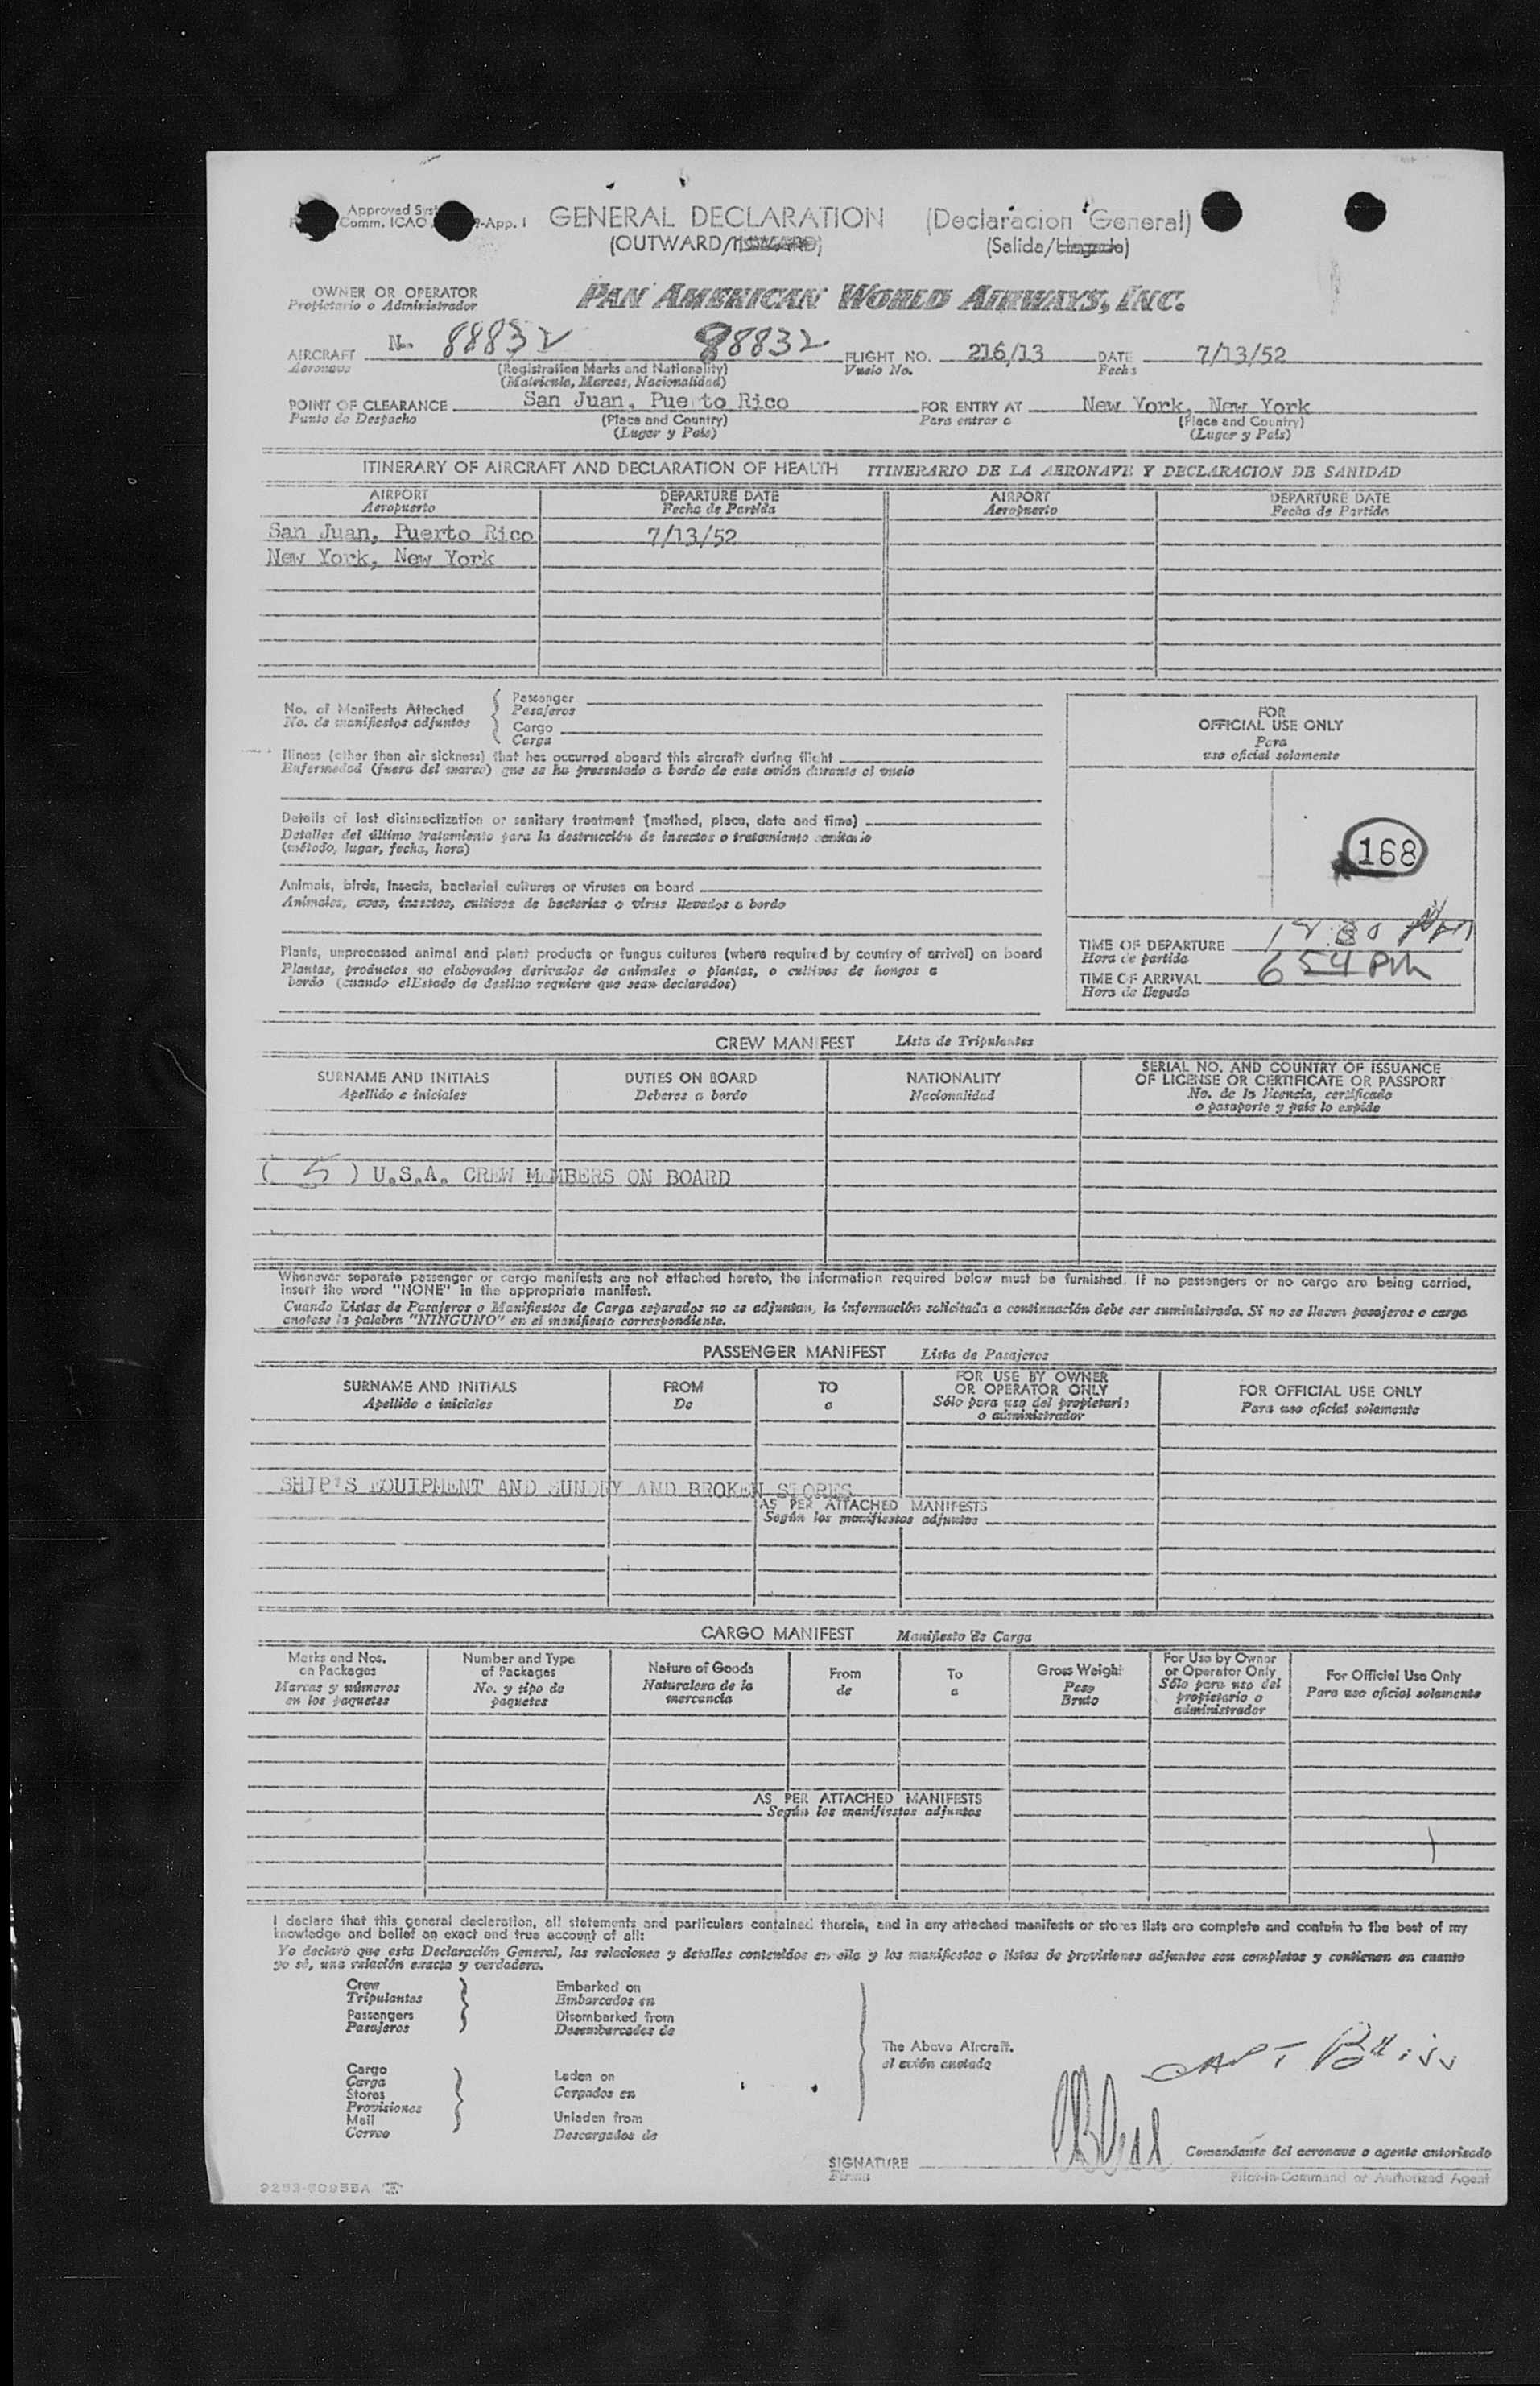 Approved Syst
Comm. ICAO 9-App. 1
GENERAL DECLARATION (Declaracion General)
(OUTWARD/INWARD) (Salida/Llegada)
OWNER OR OPERATOR
Propietario o Administrador
PAN AMERICAN WORLD AIRWAYS, INC.
AIRCRAFT N- 88832 88832 FLIGHT NO. 216/13 DATE 7/13/52
Aeronave (Registration Marks and Nationality) Vuelo No. Fecha
(Matricula, Marcas, Nacionalidad)
POINT OF CLEARANCE San Juan, Puerto Rico FOR ENTRY AT New York, New York
Punto de Despacho (Place and Country) Para entrar a (Place and Country)
(Lugar y Pais) (Lugar y Pais)
ITINERARY OF AIRCRAFT AND DECLARATION OF HEALTH ITINERARIO DE LA AERONAVE Y DECLARACION DE SANIDAD
AIRPORT DEPARTURE DATE AIRPORT DEPARTURE DATE
Aeropuerto Fecha de Partida Aeropuerto Fecha de Partida
San Juan, Puerto Rico 7/13/52
New York, New York
No. of Manifests Attached
No. de manifiestos adjuntos
Passenger
Pasajeros
Cargo
Carga
FOR
OFFICIAL USE ONLY
Para
uso oficial solamente
Illness (other than air sickness) that has occurred aboard this aircraft during flight
Enfermedad (fuera del mareo) que se ha presentado a bordo de este avión durante el vuelo
Details of last disinsectization or sanitary treatment (method, place, date and time)
Detalles del último tratamiento para la destrucción de insectos o tratamiento sanitario
(método, lugar, fecha, hora)
168
Animals, birds, insects, bacterial cultures or viruses on board
Animales, aves, insectos, cultivos de bacterias o virus llevados a bordo
Plants, unprocessed animal and plant products or fungus cultures (where required by country of arrival) on board
Plantas, productos no elaborados derivados de animales o plantas, o cultivos de hongos a
bordo (cuando elEstado de destino requiere que sean declarados)
TIME OF DEPARTURE
Hora de partida
TIME OF ARRIVAL 654 PM
Hora de llegada
CREW MANIFEST Lista de Tripulantes
SURNAME AND INITIALS DUTIES ON BOARD NATIONALITY SERIAL NO. AND COUNTRY OF ISSUANCE
OF LICENSE OR CERTIFICATE OR PASSPORT
Apellido e iniciales Deberes a bordo Nacionalidad No. de la licencia, certificado
o pasaporte y pais lo expide
( 5 ) U.S.A. CREW MEMBERS ON BOARD
Whenever separate passenger or cargo manifests are not attached hereto, the information required below must be furnished. If no passengers or no cargo are being carried,
insert the word "NONE" in the appropriate manifest.
Cuando Listas de Pasajeros o Manifiestos de Carga separados no se adjuntan, la información solicitada a continuación debe ser suministrada. Si no se llevan pasajeros o carga
anotese la palabra "NINGUNO" en el manifiesto correspondiente.
PASSENGER MANIFEST Lista de Pasajeros
SURNAME AND INITIALS FROM TO FOR USE BY OWNER
OR OPERATOR ONLY FOR OFFICIAL USE ONLY
Apellido e iniciales De a Sólo para uso del propietario
o administrador Para uso oficial solamente
SHIP'S EQUIPMENT AND SUNDRY AND BROKEN STORES
AS PER ATTACHED MANIFESTS
Según los manifiestos adjuntos
CARGO MANIFEST Manifiesto de Carga
Marks and Nos.
on Packages
Marcas y números
en los paquetes
Number and Type
of Packages
No. y tipo de
paquetes
Nature of Goods
Naturaleza de la
mercancia
From
de
To
a
Gross Weight
Peso
Bruto
For Use by Owner
or Operator Only
Sólo para uso del
propietario o
administrador
For Official Use Only
Para uso oficial solamente
AS PER ATTACHED MANIFESTS
Según los manifiestos adjuntos
I declare that this general declaration, all statements and particulars contained therein, and in any attached manifests or stores lists are complete and contain to the best of my
knowledge and belief an exact and true account of all:
Yo declaro que esta Declaración General, las relaciones y detalles contenidos en ella y los manifiestos o listas de provisiones adjuntos son completos y contienen en cuanto
yo sé, una relación exacta y verdadera.
Crew
Tripulantes
Passengers
Pasajeros
Embarked on
Embarcados en
Disembarked from
Desembarcados de
Cargo
Carga
Stores
Provisiones
Mail
Correo
Laden on
Cargados en
Unladen from
Descargados de
The Above Aircraft.
el avión anotado
SIGNATURE
Firma
Comandante del aeronave o agente autorizado
Pilot-in-Command or Authorized Agent